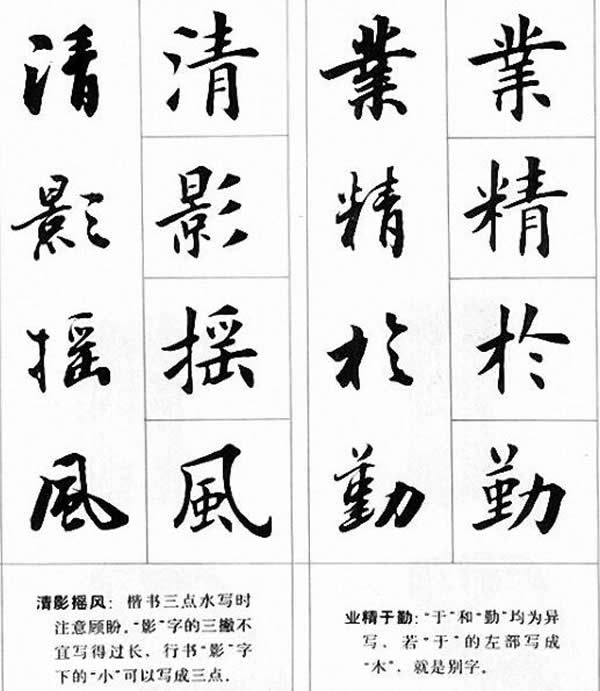 清影摇風
清影摇風
業精於勤
業精於勤
清影摇风：楷书三点水写时
注意顾盼。“影”字的三撇不
宜写得过长，行书“影”字
下的“小”可以写成三点．
业精于勤：“于”和“勤”均为异
写，若“于”的左部写成
“木”，就是别字．